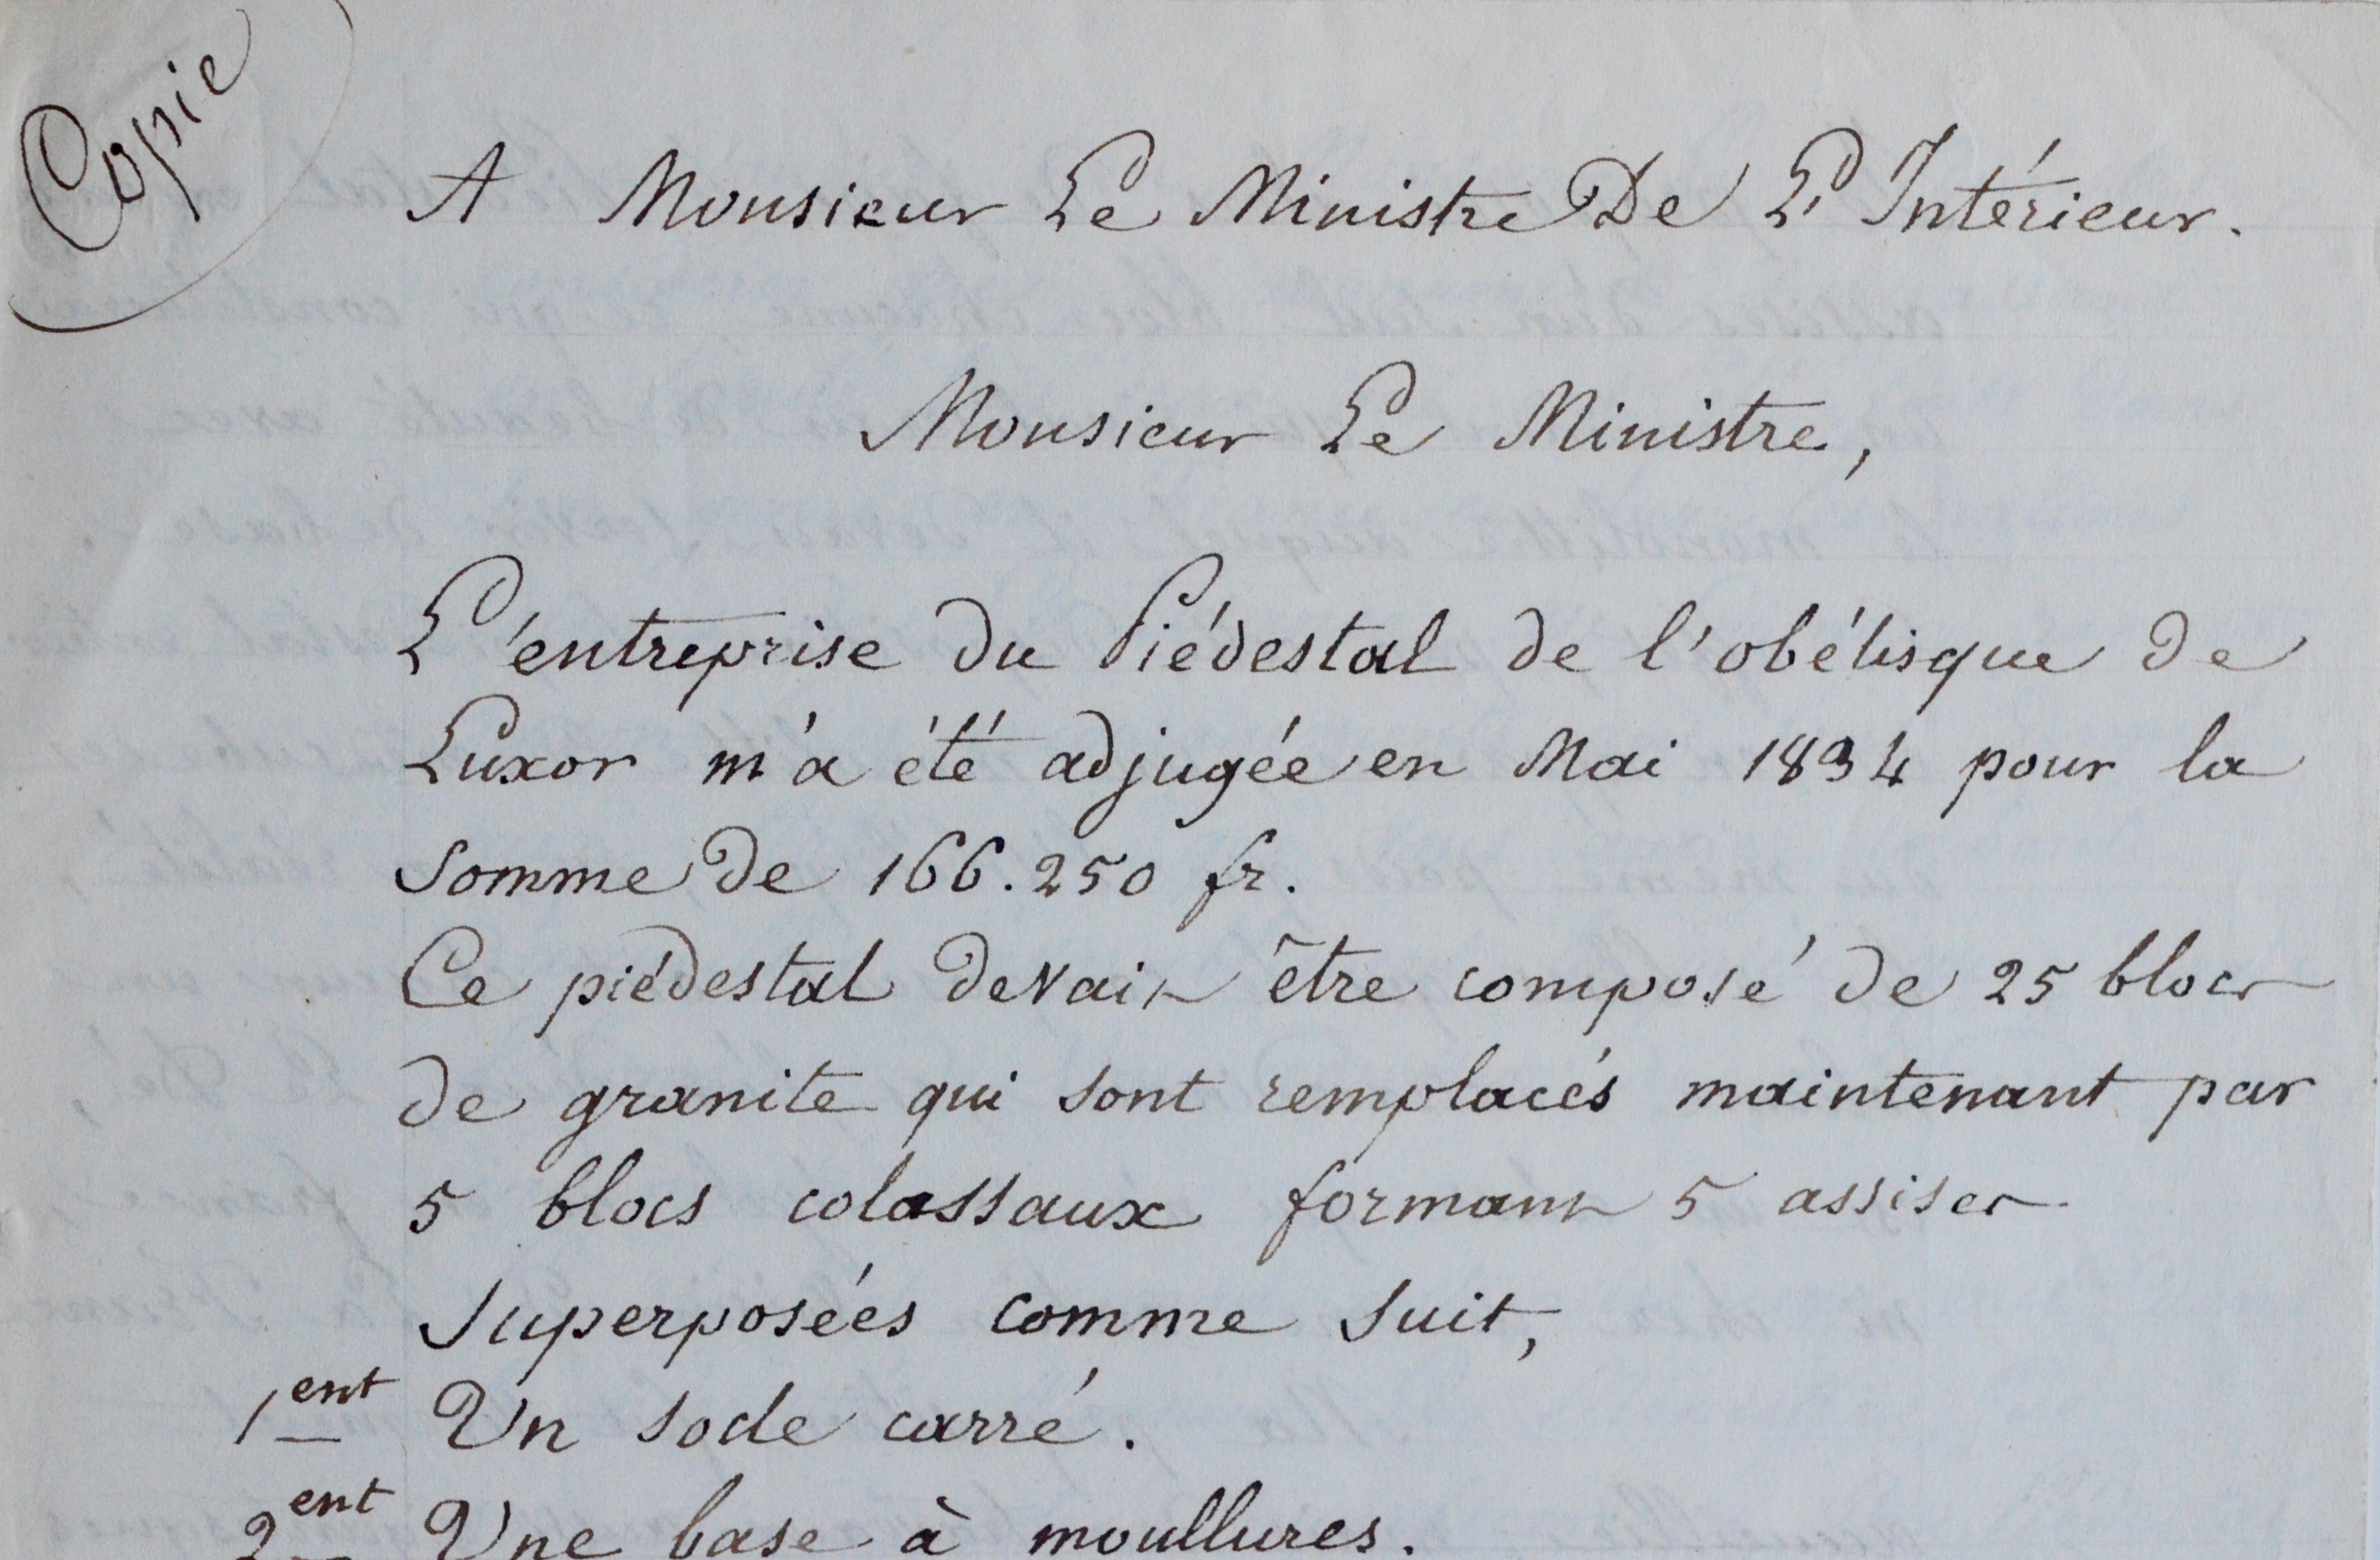 Copie
A Monsieur Le Ministre De L'Intérieur.
Monsieur Le Ministre,
L'entreprise du Piédestal de l'obélisque de
Luxor m'a été adjugée en Mai 1834 pour la
somme de 166.250 fr.
Ce piédestal devait être composé de 25 blocs
de granite qui sont remplacés maintenant par
5 blocs colassaux formant 5 assises
superposées comme suit,
1ent Un socle carré.
2ent Une base à moullures.